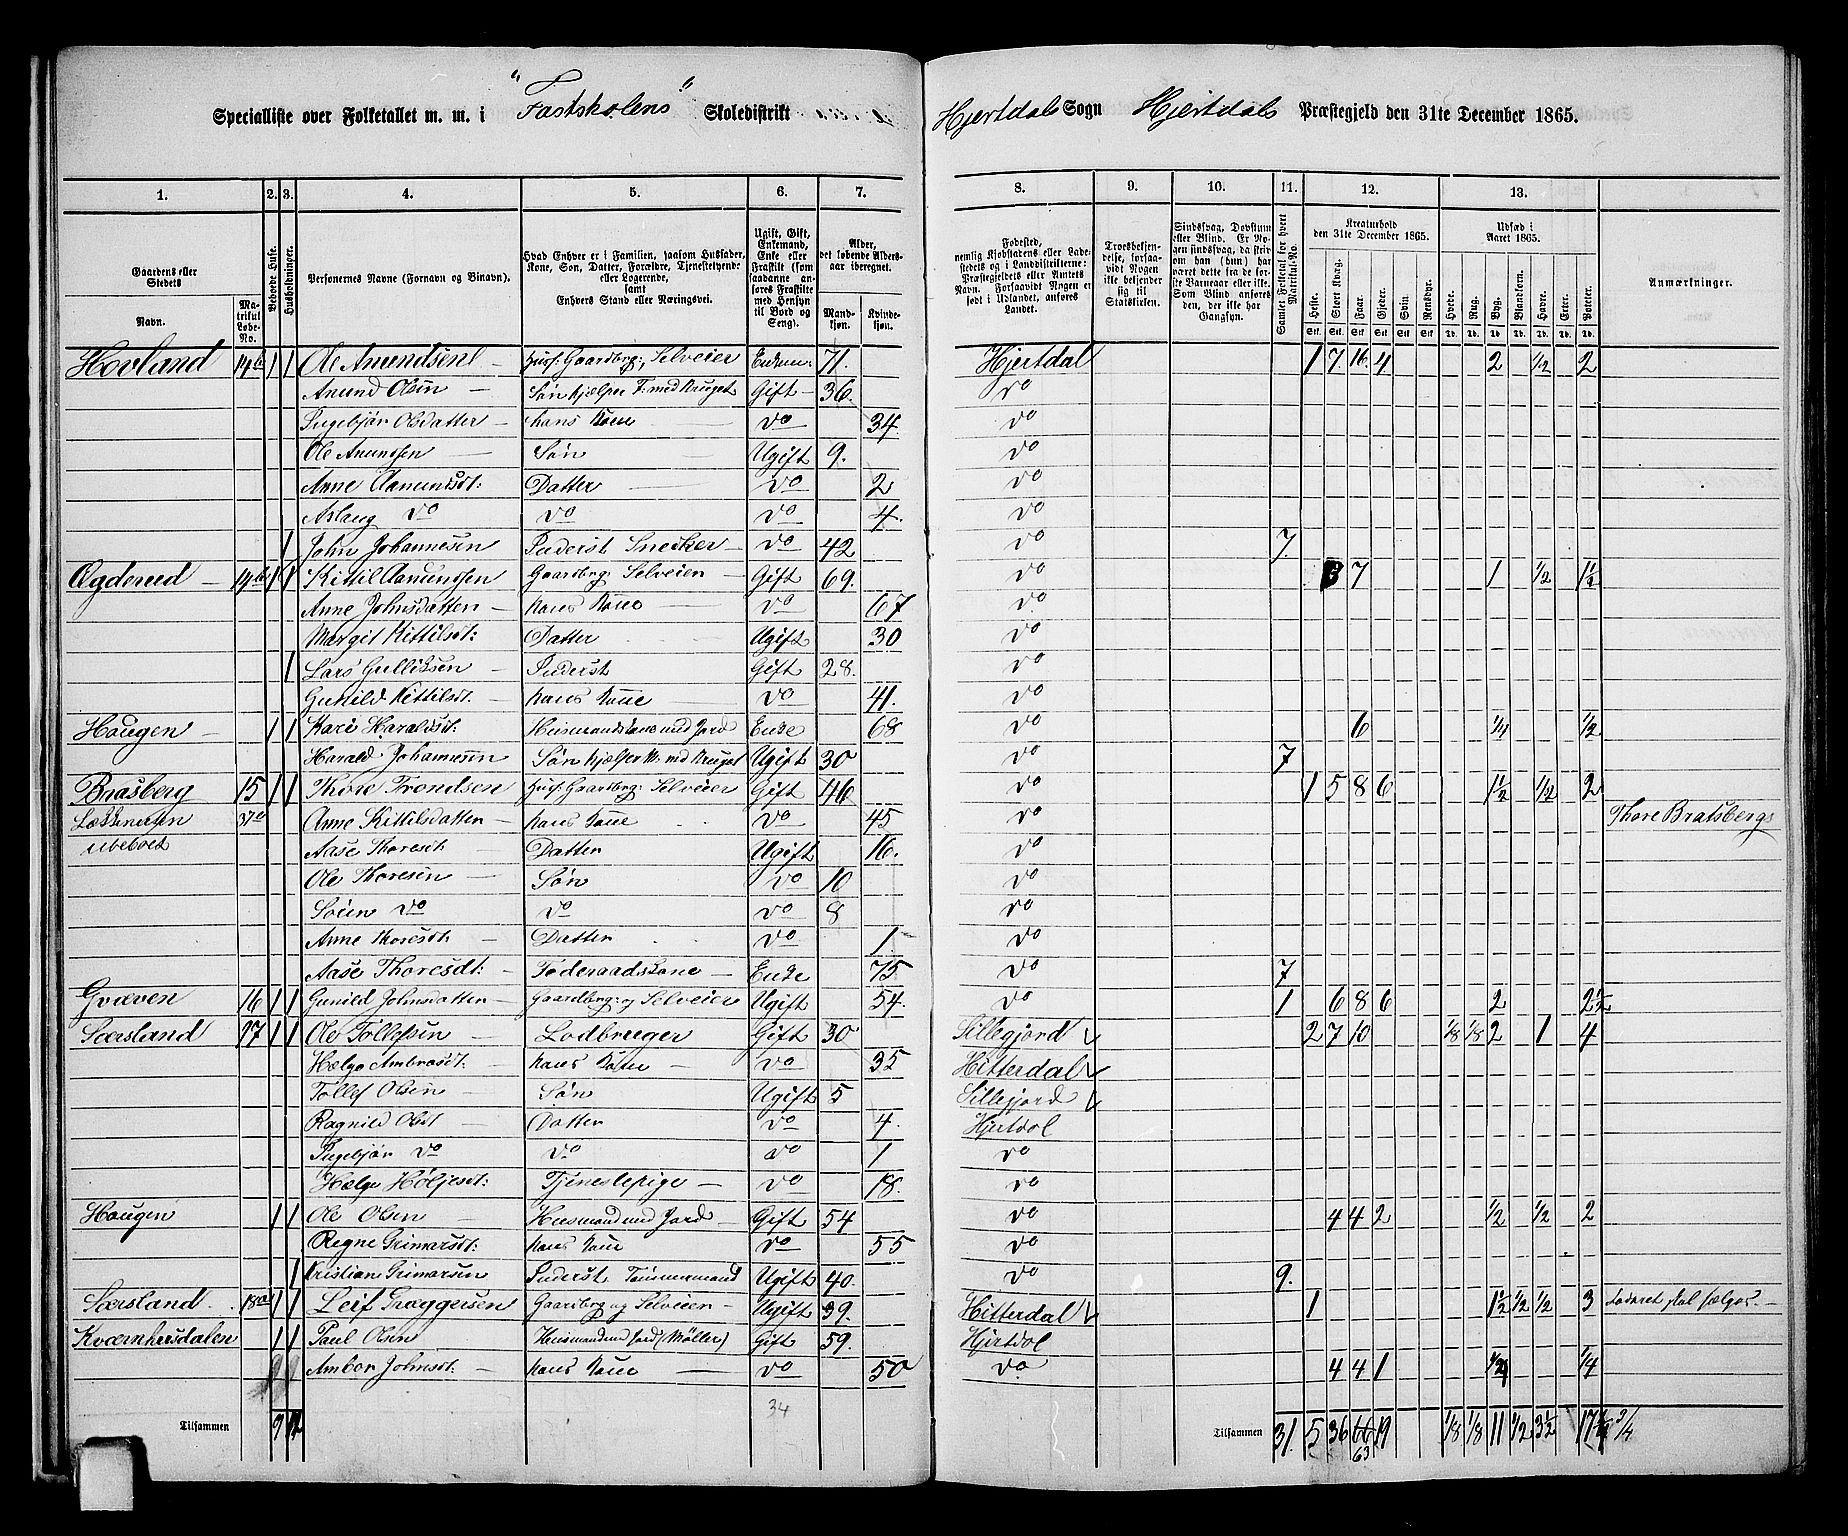 Specialliste over Folketallet m. m. i "Fastskolens" Skoledistrikt Hjertdals Sogn Hjertdals Præstegjeld den 31te December 1865.
1. 2. 3. 4. 5. 6. 7. 8. 9. 10. 11. 12. 13.
Gaardens eller Stedets Navn. Matrikul Løbe-No. Beboede Huse. Husholdninger. Personernes Navne (Fornavn og Binavn). Hvad Enhver er i Familien, saasom Husfader, Kone, Søn, Datter, Forældre, Tjenestetyende eller Logerende, samt Enhvers Stand eller Næringsvei. Ugift, Gift, Enkemand, Enke eller Fraskilt (saadanne anføres Fraskilte med Hensyn til Bord og Seng). Alder, det løbende Aldersaar iberegnet. Mandkjøn. Kvindekjøn. Fødested, Troesbekjendelse, forsaavidt Nogen ikke bekjender sig til Statskirken. Samlet Folketal for hvert Matrikul-No. Kreaturhold den 31te December 1865. Heste. Stort Kvæg. Faar. Gjeder. Svin. Rensdyr. Udsæd i Aaret 1865. Hvede. Rug. Byg. Blandkorn. Havre. Erter. Poteter. Anmærkninger.
Hovland 14b 1 1 Ole Amundsen Husf: Gaardbrg: Selveier Enkem: 71. Hjertdal 1 7. 16. 4 2 1/2 2
Amund Olsen Søn hjælper F. med Bruget Gift 36. do
Ingebjør Olsdatter hans Kone do 34. do
Ole Amundsen Søn Ugift 9. do
Anne Aamundsdt: Datter do 2 do
Aslaug do do do 4. do
1 John Johannesen Inderst Snedker do 42 do 7.
Øgderud 14 1 1 Kittil Aamundsen Gaardbrg: Selveier Gift 69. do 3 7 1 1/2 1 1/2
Anne Johnsdatter hans Kone do 67 do
Margit Kittilsdt: Datter Ugift 30 do
1 Lars Gulliksen Inderst Gift 28. do
Gunild Kittilsdt hans Kone do 41. do
Haugen 1 1 Kari Haraldsdt: Husmandskone med Jord Enke 68 do 6 1/4 1/2
Harald Johannesen Søn hjælper M. med Bruget Ugift 30 do 7
Brasberg 15 1 1 Thore Trondsen Husf: Gaardbrg: Selveier Gift 46 do 1 5 8 6 1 1/2 1/2 2
37 Anne Kittilsdatter hans Kone do 45 do Thore Bratsbergs
ubeboet Aase Thoresdt Datter Ugift 16. do
Ole Thoresen Søn do 10 do
do do do 8 do
Anne Thoresdt Datter do 1. do
Aase Thoresdt: Føderaadskone Enke 75. do 7
Gvæven 16 1 1 Gunild Johnsdatter Gaardbrg: og Selveier Ugift 54. do 1 6 8 6 2 2 1/2
Særsland 17 1 1 Ole Tollefsen Lodbruger Gift 30 Sillegjord 2 7 10 1/8 1/8 2 1 4
Hælge Ambrosdt: hans Kone do 35 Hitterdal
Tollef Olsen Søn Ugift 5 Sillejord
Ragnild Olsdt Datter do 4. Hjertdal
Ingebjør do do do 1 do
Hælge Høljesdt: Tjenestepige do 18. do
Haugen 1 1 Ole Olsen Husmand med Jord Gift 54 do 4 4 2 1/2 1/2 2
Regne Grimarsdt: hans Kone do 55 do
1 Kristian Grimarsen Inderst Tømmermand Ugift 40. do 9.
Særsland 18a 1 1 Leif Græggersen Gaardbrg og Selveier Ugift 39. Hitterdal 1 1 1/2 1/2 1/2 3
Kværnhusdalen 1 1 Paul Olsen Husmand med Jord (Møller) Gift 59. Hjertdal
Ambor Johnsdt: hans Kone do 50 do 4 4 1 1/4
34
Tilsammen 9 12 Tilsammen 31. 5 36 66 19 1/8 1/8 11 1/2 3 1/2 17 3/4
63